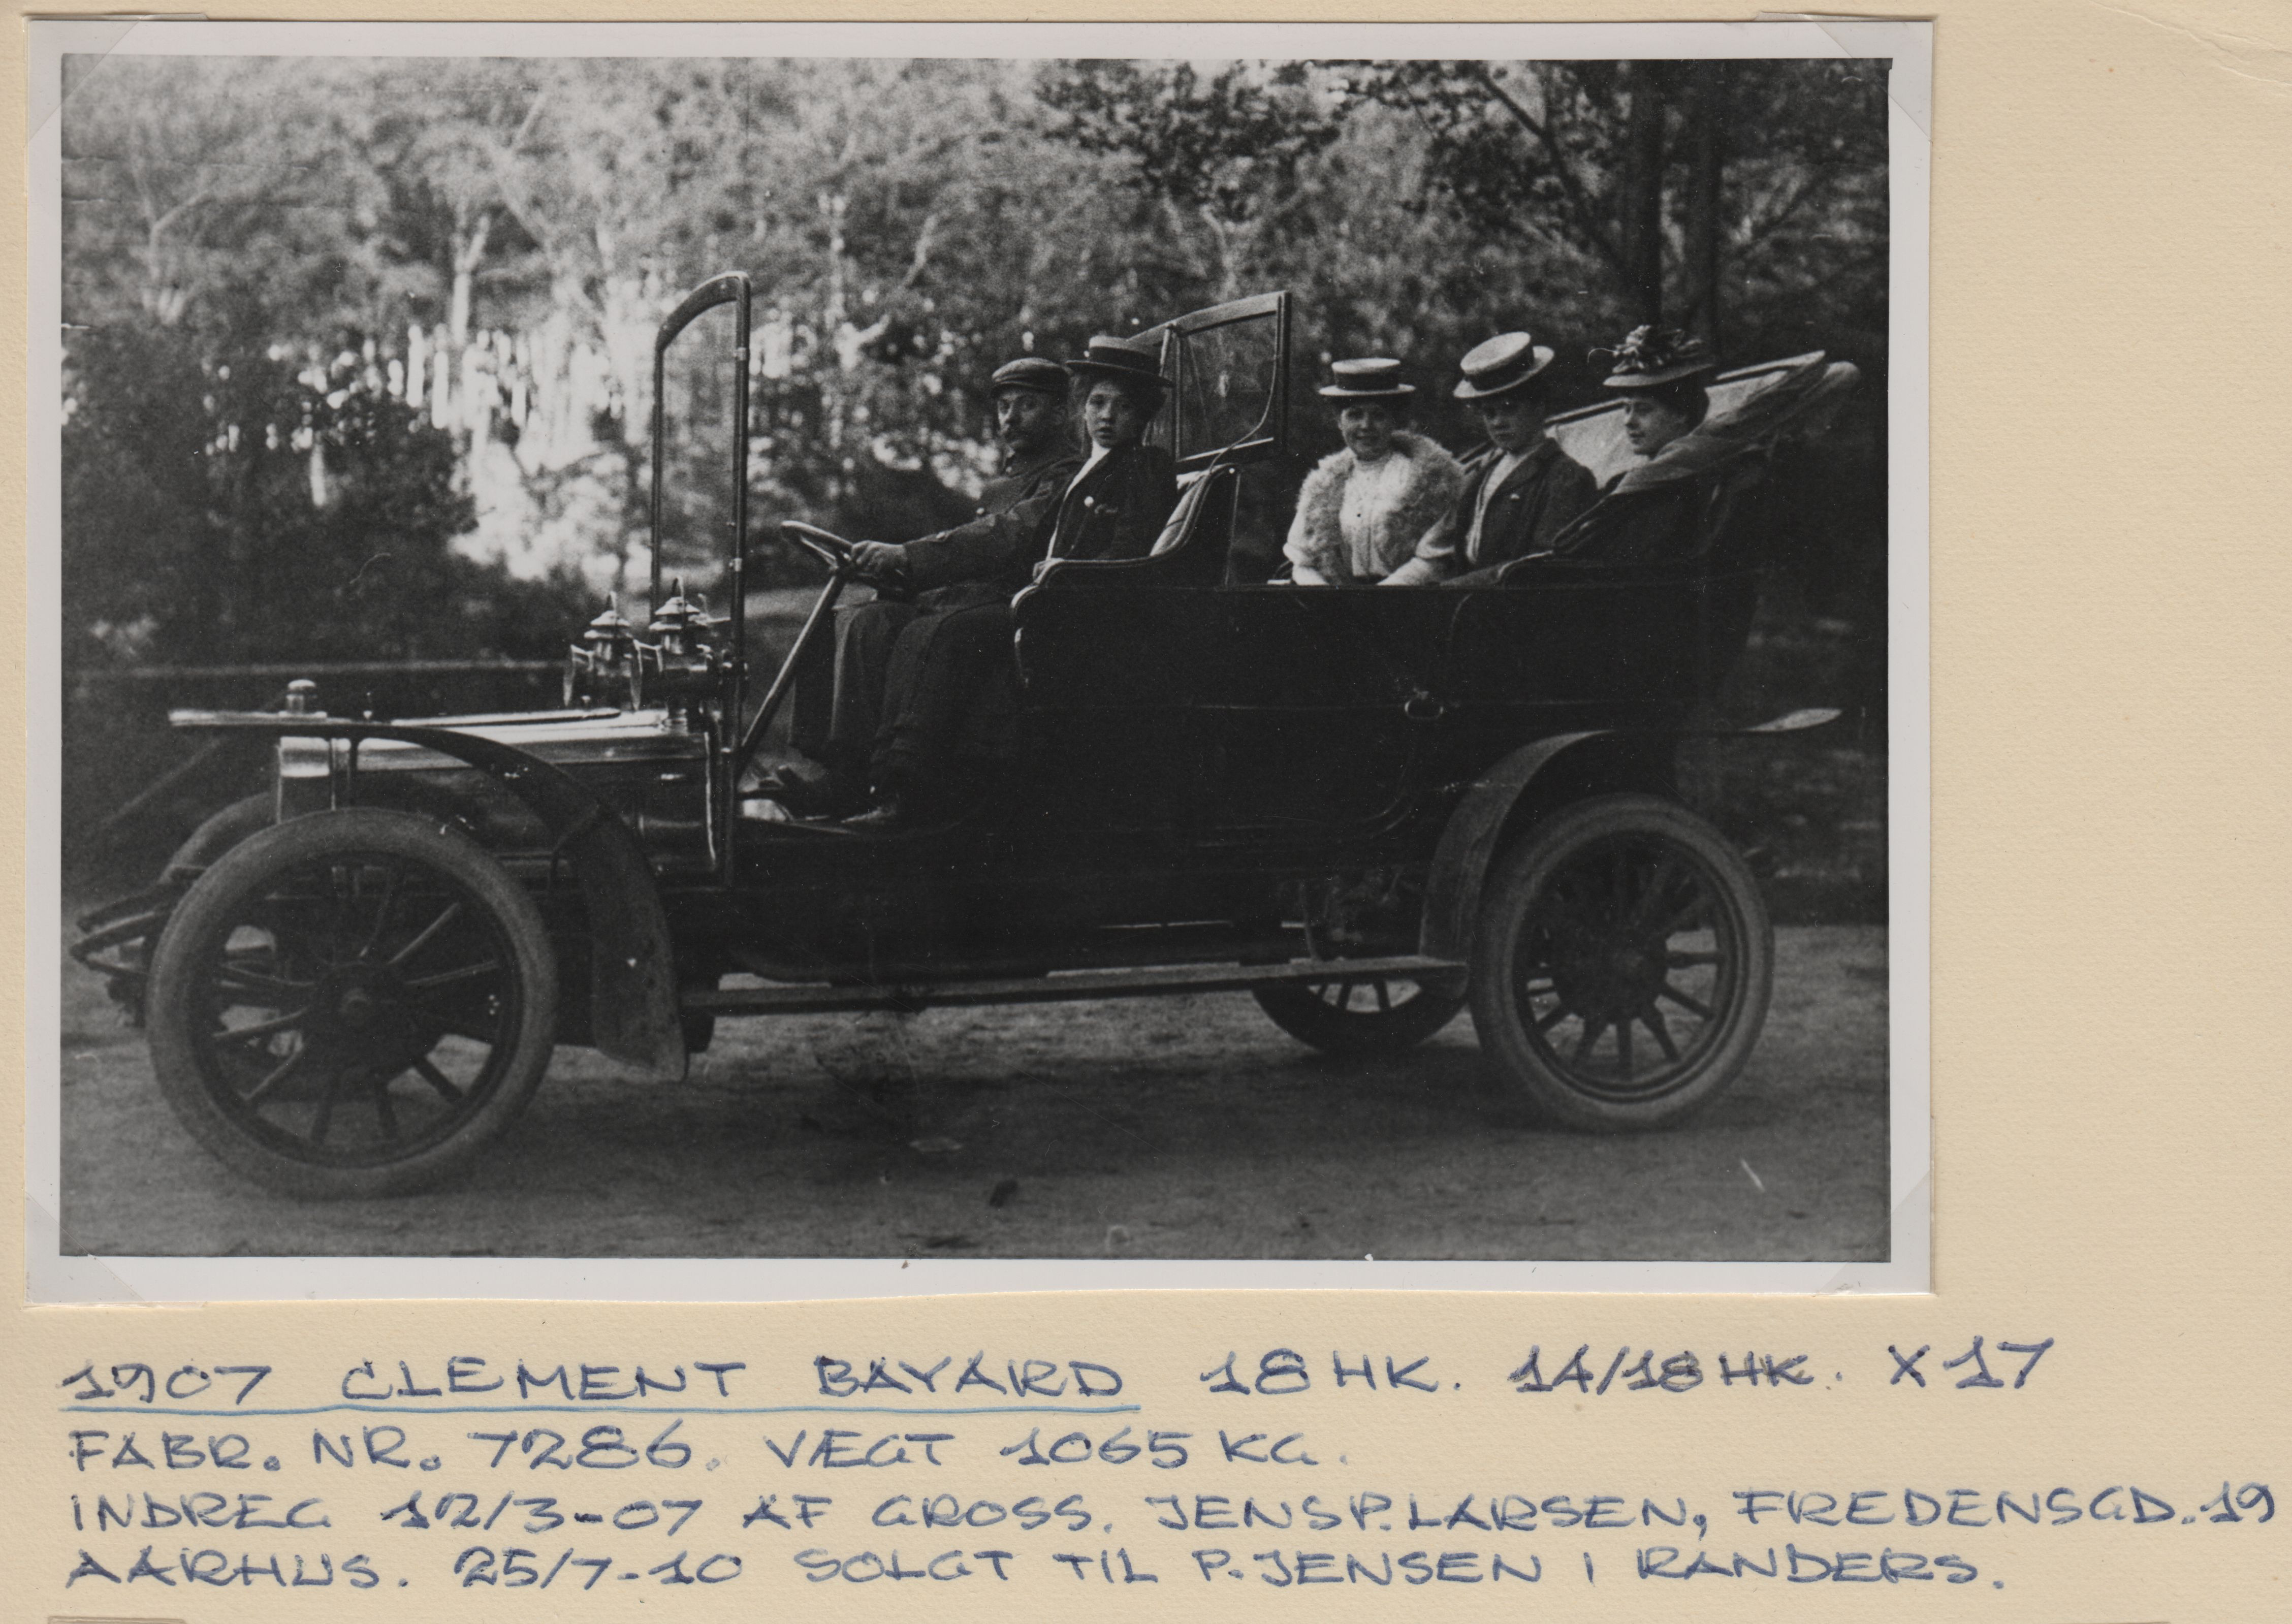 1907 CLEMENT BAYARD 18 HK. 14/18 HK. X17
FABR. NR. 7286. VÆGT 1065 KG.
INDREG 12/3-07 AF GROSS. JENS P. LARSEN, FREDENSGD. 19
AARHUS. 25/7-10 SOLGT TIL P. JENSEN I RANDERS.